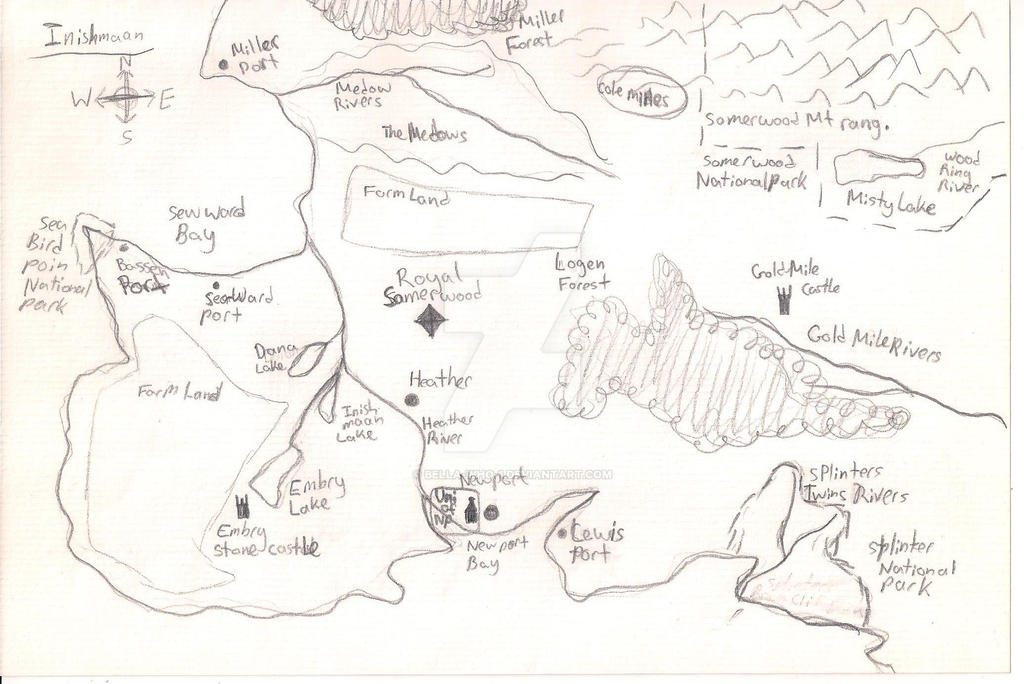 Inishmaan
N
W E
S
Miller
Port
Miller
Forest
Medow
Rivers
The Medows
Cole mines
Somerwood Mt rang.
Somerwood
National Park
Wood
Ring
River
Misty Lake
Farm Land
Sew ward
Bay
Sea
Bird
Poin
National
Park
Bassen
Port
SeaWard
Port
Royal
Somerwood
Logen
Forest
Gold Mile
Castle
Gold Mile Rivers
Dana
Lake
Farm Land
Heather
Inish
maan
Lake
Heather
River
Embry
Lake
Embry
stone castle
Newport
Uni
of
NP
Newport
Bay
Lewis
Port
Splinters
Twins Rivers
Splinter
National
Park